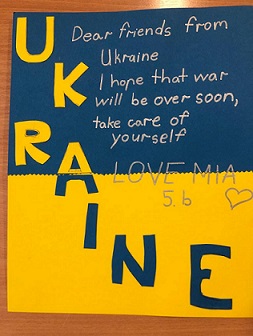 UKRAINE
Dear friends from
Ukraine
I hope that war
will be over soon,
take care of
yourself
LOVE MIA
5.b